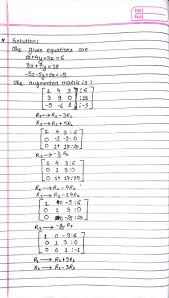 * Solution:
The given equations are
x+4y+3z = 6
3x+9y = 18
-5x-6y+2z = -5
The augmented matrix is :
[ 1 4 3 : 6
3 9 0 : 18
-5 -6 2 : -5 ]
R₂ → R₂ - 3R₁
R₃ → R₃ + 5R₁
[ 1 4 3 : 6
0 -3 -9 : 0
0 14 17 : 25 ]
[ 1 4 3 : 6
0 1 3 : 0
0 14 17 : 25 ]
R₁ → R₁ - 4R₂
R₃ → R₃ - 14R₂
[ 1 0 -9 : 6
0 1 3 : 0
[ 1 0 -9 : 6
0 1 3 : 0
0 0 1 : -1 ]
R₁ → R₁ + 9R₃
R₂ → R₂ - 3R₃